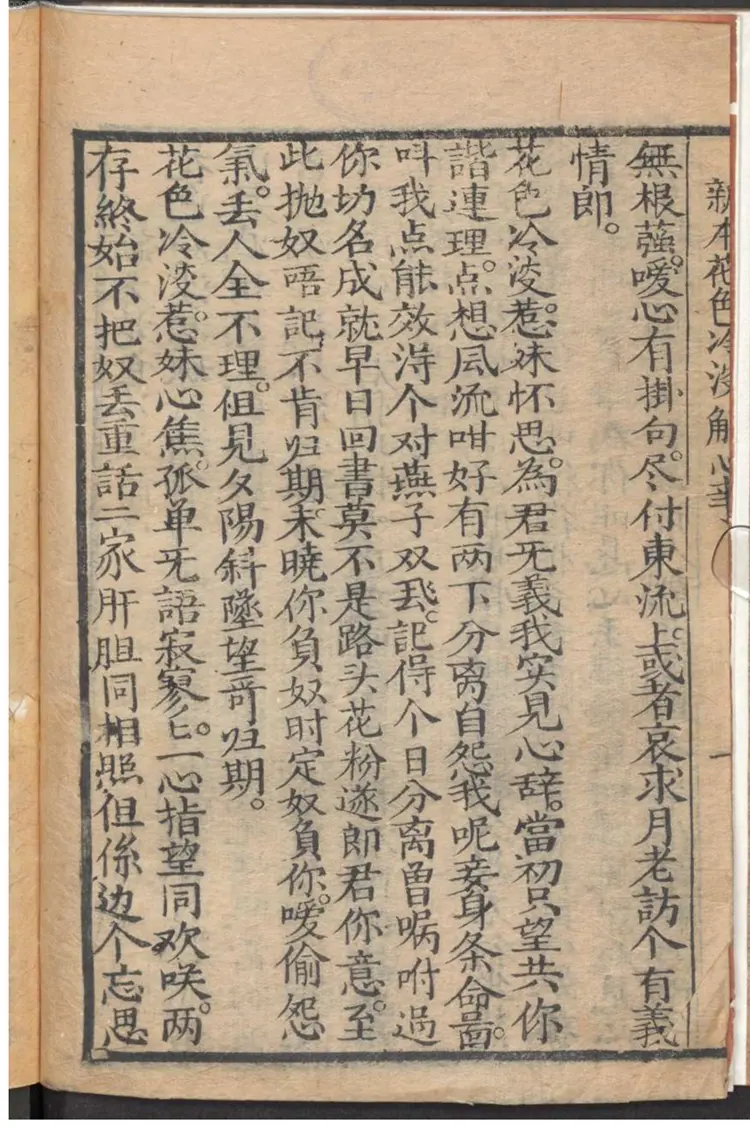 新本花色冷淡解心事 一
無根蕴。嗳心有掛句。尽付東流。上或者哀求月老訪个有義
情郎。
花色冷淡。惹妹怀思。為君无義我实見心辞。當初只望共你
諧連理。点想風流咁好有两下分离自怨我呢妾身条命啚。
呌我点能效淂个对燕子双飛。記得个日分离曽嘱咐過
你功名成就早日回書莫不是路头花粉遂郎君你意。至
此抛奴唔記不肯归期。未曉你負奴时定奴負你。嗳偷怨
氣。丢人全不理。但見夕陽斜墜望哥归期。
花色冷淡。惹妹心焦。孤单无語寂寥〻。一心指望同欢咲。两
存終始不把奴丢重話二家肝胆同相照但係边个忘思